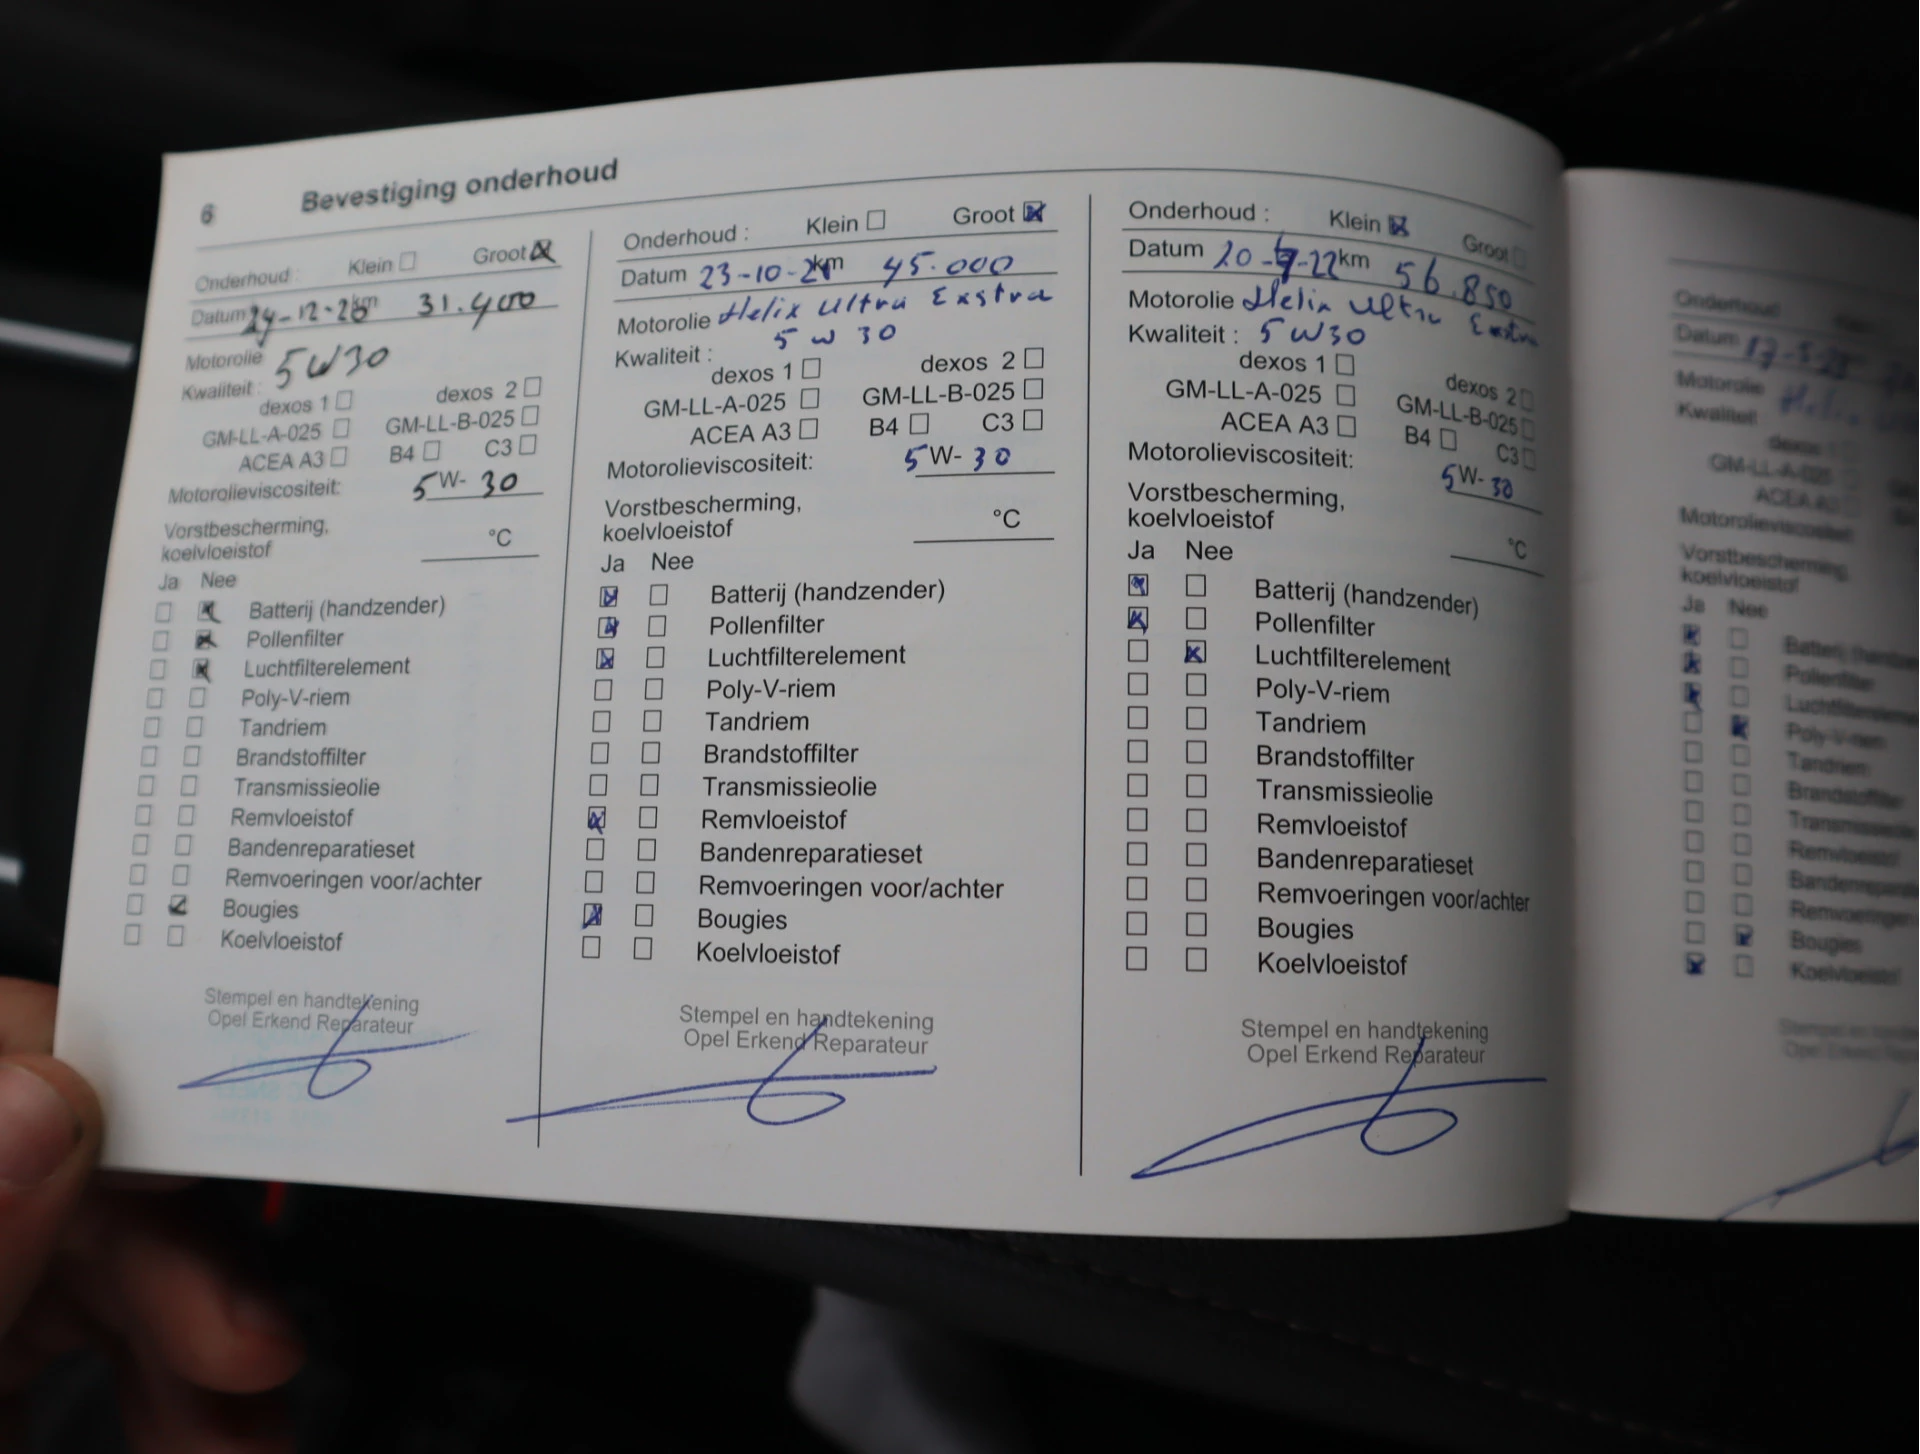 6 Bevestiging onderhoud
Onderhoud : Klein Groot
Datum km 31.400
Motorolie 5W30
Kwaliteit :
dexos 1 dexos 2
GM-LL-A-025 GM-LL-B-025
ACEA A3 B4 C3
Motorolieviscositeit: 5 W- 30
Vorstbescherming,
koelvloeistof °C
Ja Nee
Batterij (handzender)
Pollenfilter
Luchtfilterelement
Poly-V-riem
Tandriem
Brandstoffilter
Transmissieolie
Remvloeistof
Bandenreparatieset
Remvoeringen voor/achter
Bougies
Koelvloeistof
Stempel en handtekening
Opel Erkend Reparateur
Onderhoud : Klein Groot
Datum 23-10-21 km 45.000
Motorolie Helix Ultra Exstra
5 W 30
Kwaliteit :
dexos 1 dexos 2
GM-LL-A-025 GM-LL-B-025
ACEA A3 B4 C3
Motorolieviscositeit: 5 W- 30
Vorstbescherming,
koelvloeistof °C
Ja Nee
Batterij (handzender)
Pollenfilter
Luchtfilterelement
Poly-V-riem
Tandriem
Brandstoffilter
Transmissieolie
Remvloeistof
Bandenreparatieset
Remvoeringen voor/achter
Bougies
Koelvloeistof
Stempel en handtekening
Opel Erkend Reparateur
Onderhoud : Klein Groot
Datum km 56.850
Motorolie Helix Ultra Exstra
Kwaliteit : 5 W30
dexos 1 dexos 2
GM-LL-A-025 GM-LL-B-025
ACEA A3 B4 C3
Motorolieviscositeit: 5 W- 30
Vorstbescherming,
koelvloeistof °C
Ja Nee
Batterij (handzender)
Pollenfilter
Luchtfilterelement
Poly-V-riem
Tandriem
Brandstoffilter
Transmissieolie
Remvloeistof
Bandenreparatieset
Remvoeringen voor/achter
Bougies
Koelvloeistof
Stempel en handtekening
Opel Erkend Reparateur
Onderhoud
Datum
Motorolie
Kwaliteit
dexos
GM-LL-A-025
ACEA
Motorolieviscositeit
Vorstbescherming,
koelvloeistof
Ja Nee
Batterij
Pollenfilter
Poly-V-riem
Tandriem
Brandstoffilter
Remvloeistof
Bougies
Koelvloeistof